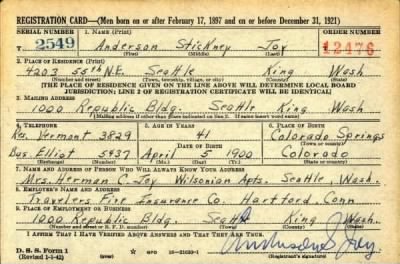 REGISTRATION CARD—(Men born on or after February 17, 1897 and on or before December 31, 1921)
SERIAL NUMBER 1. NAME (Print) ORDER NUMBER
T 2549 Anderson Stickney Joy 12476
(First) (Middle) (Last)
2. PLACE OF RESIDENCE (Print)
4203 55th N.E. Seattle King Wash
(Number and street) (Town, township, village, or city) (County) (State)
[THE PLACE OF RESIDENCE GIVEN ON THE LINE ABOVE WILL DETERMINE LOCAL BOARD
JURISDICTION; LINE 2 OF REGISTRATION CERTIFICATE WILL BE IDENTICAL]
3. MAILING ADDRESS
1000 Republic Bldg. Seattle King Wash
[Mailing address if other than place indicated on line 2. If same insert word same]
4. TELEPHONE 5. AGE IN YEARS 6. PLACE OF BIRTH
Res. Vermont 3829 41 Colorado Springs
DATE OF BIRTH (Town or county)
Bus. Elliot 5437 April 5 1900 Colorado
(Exchange) (Number) (Mo.) (Day) (Yr.) (State or country)
7. NAME AND ADDRESS OF PERSON WHO WILL ALWAYS KNOW YOUR ADDRESS
Mrs. Herman C. Joy Wilsonian Apts. Seattle Wash.
8. EMPLOYER'S NAME AND ADDRESS
Travelers Fire Insurance Co. Hartford, Conn
9. PLACE OF EMPLOYMENT OR BUSINESS
1000 Republic Bldg. Seattle King Wash.
(Number and street or R. F. D. number) (Town) (County) (State)
I AFFIRM THAT I HAVE VERIFIED ABOVE ANSWERS AND THAT THEY ARE TRUE.
D. S. S. Form 1
(Revised 1-1-42) GPO 16—21630-1 Anderson S. Joy
(Registrant's signature)